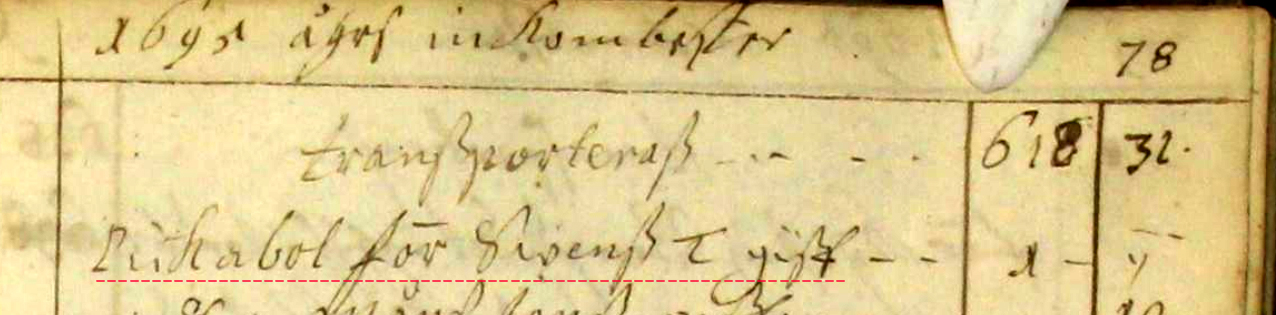 1695 åhrs inkombster 78
transporteras 618 32.
Lukabol för Swenß T gift 1